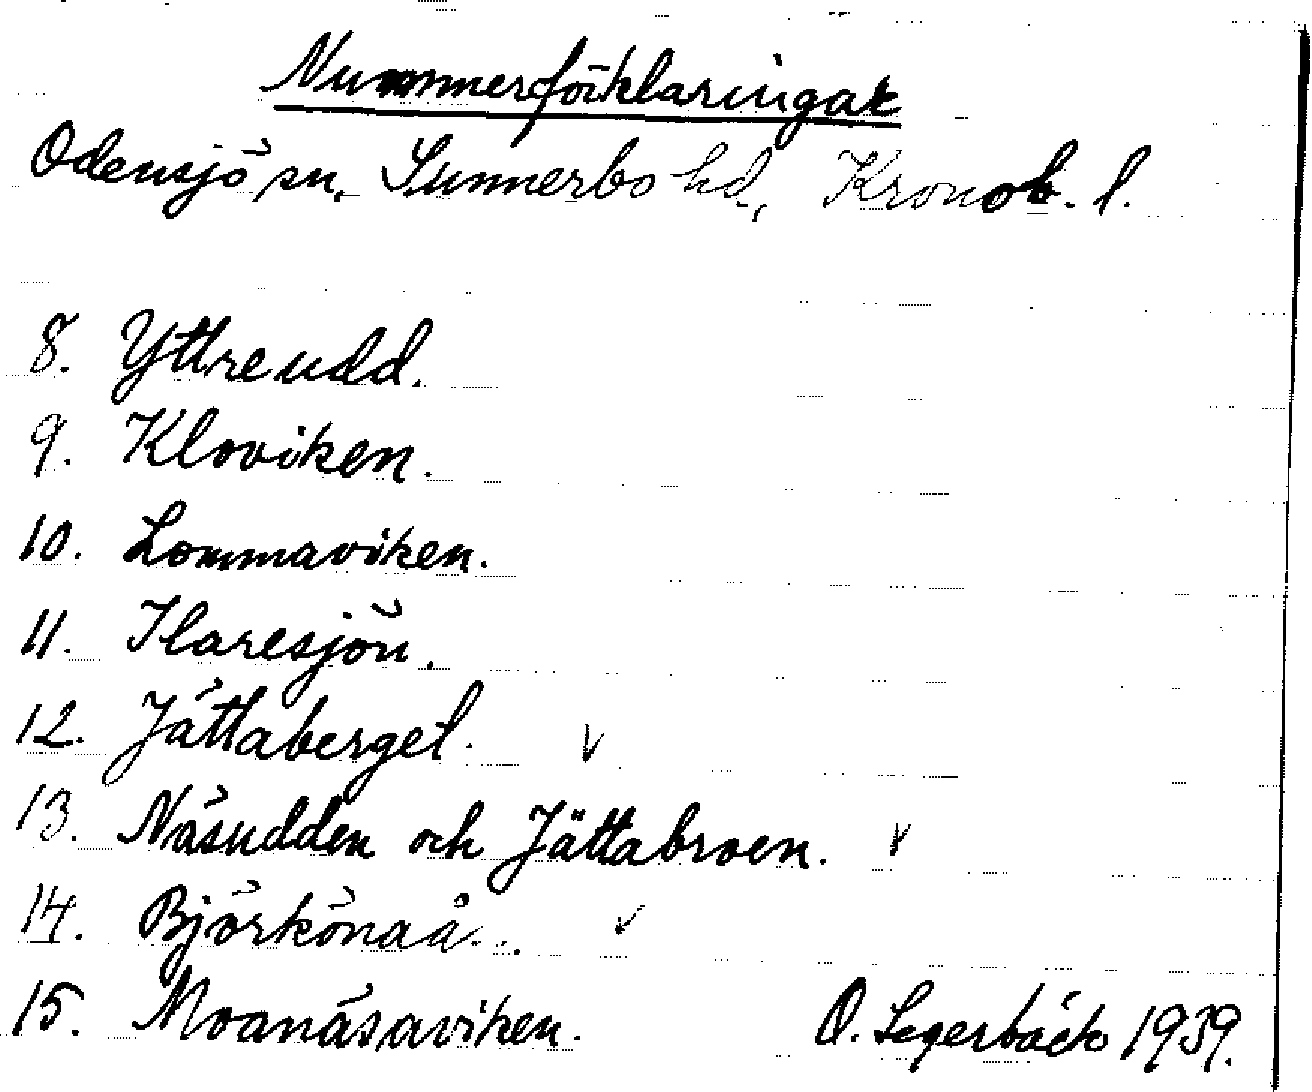 Nummerförklaringar
Odensjö sn, Sunnerbo hd, Kronob. l.
8. Yttre udd.
9. Kloviken.
10. Lommaviken.
11. Flaresjön.
12. Jättaberget. v
13. Näsudden och Jättabroen. v
14. Björkönaå... v
15. Moanäsaviken. O. Segerbäck 1939.